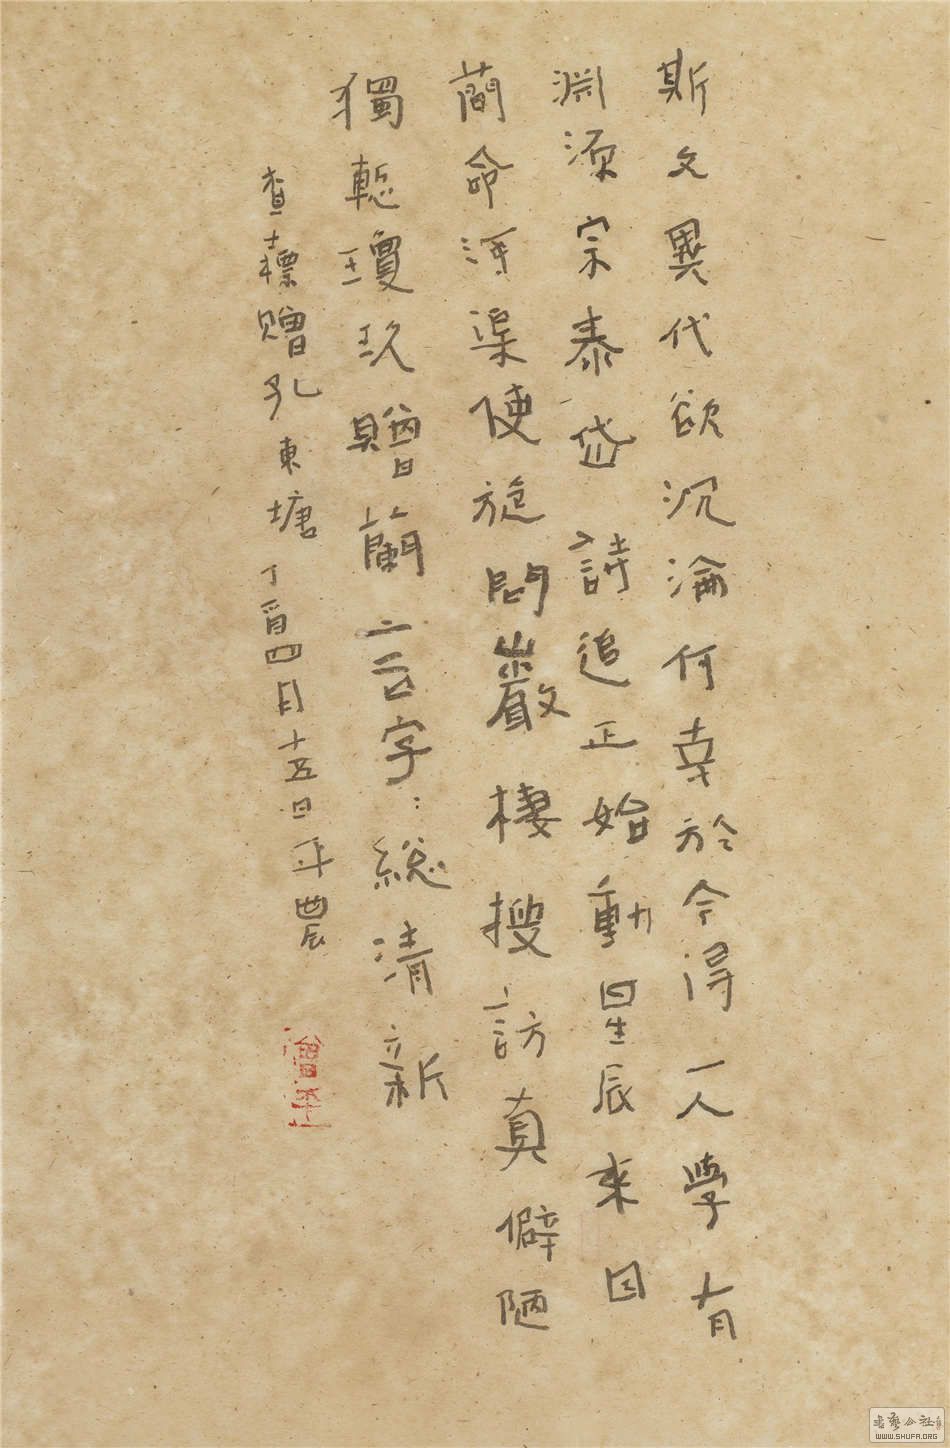 斯文異代欲沉淪何幸於今得一人學有
淵源宗泰岱詩追正始動星辰來因
蕑命河渠使旋問巖棲搜訪真僻陋
獨慙瓊玖贈蘭言字：總清新
查士標贈孔東塘丁酉四月十五日平農
WWW.SHUFA.ORG